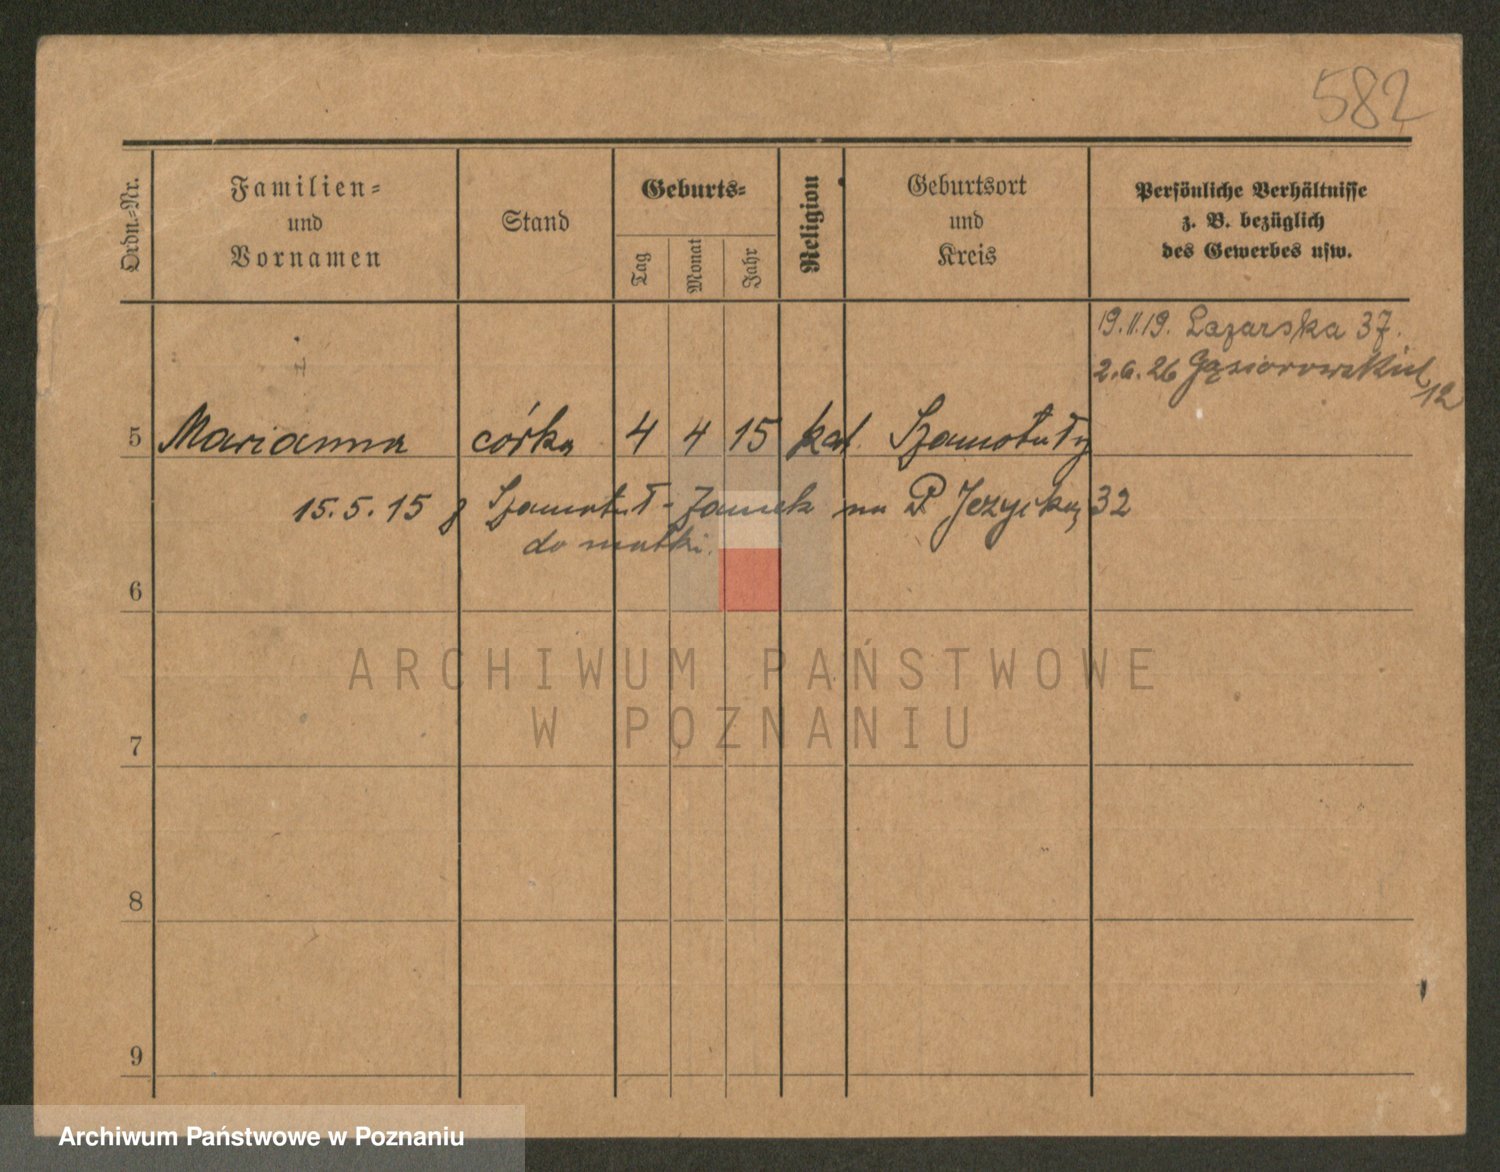 582
Ordn.-Nr.
Familien-
und
Vornamen
Stand
Geburts-
Tag
Monat
Jahr
Religion
Geburtsort
und
Kreis
Persönliche Verhältnisse
z. B. bezüglich
des Gewerbes usw.
19.II.19. Lazarska 37.
2.6.26 Gąsiorowskich 12
5 Marianna córka 4 4 15 kat. Szamotuły
15.5.15 z Szamotuł-Zamek na P. Jezycką 32
do matki.
6
ARCHIWUM PAŃSTWOWE
W POZNANIU
7
8
9
Archiwum Państwowe w Poznaniu